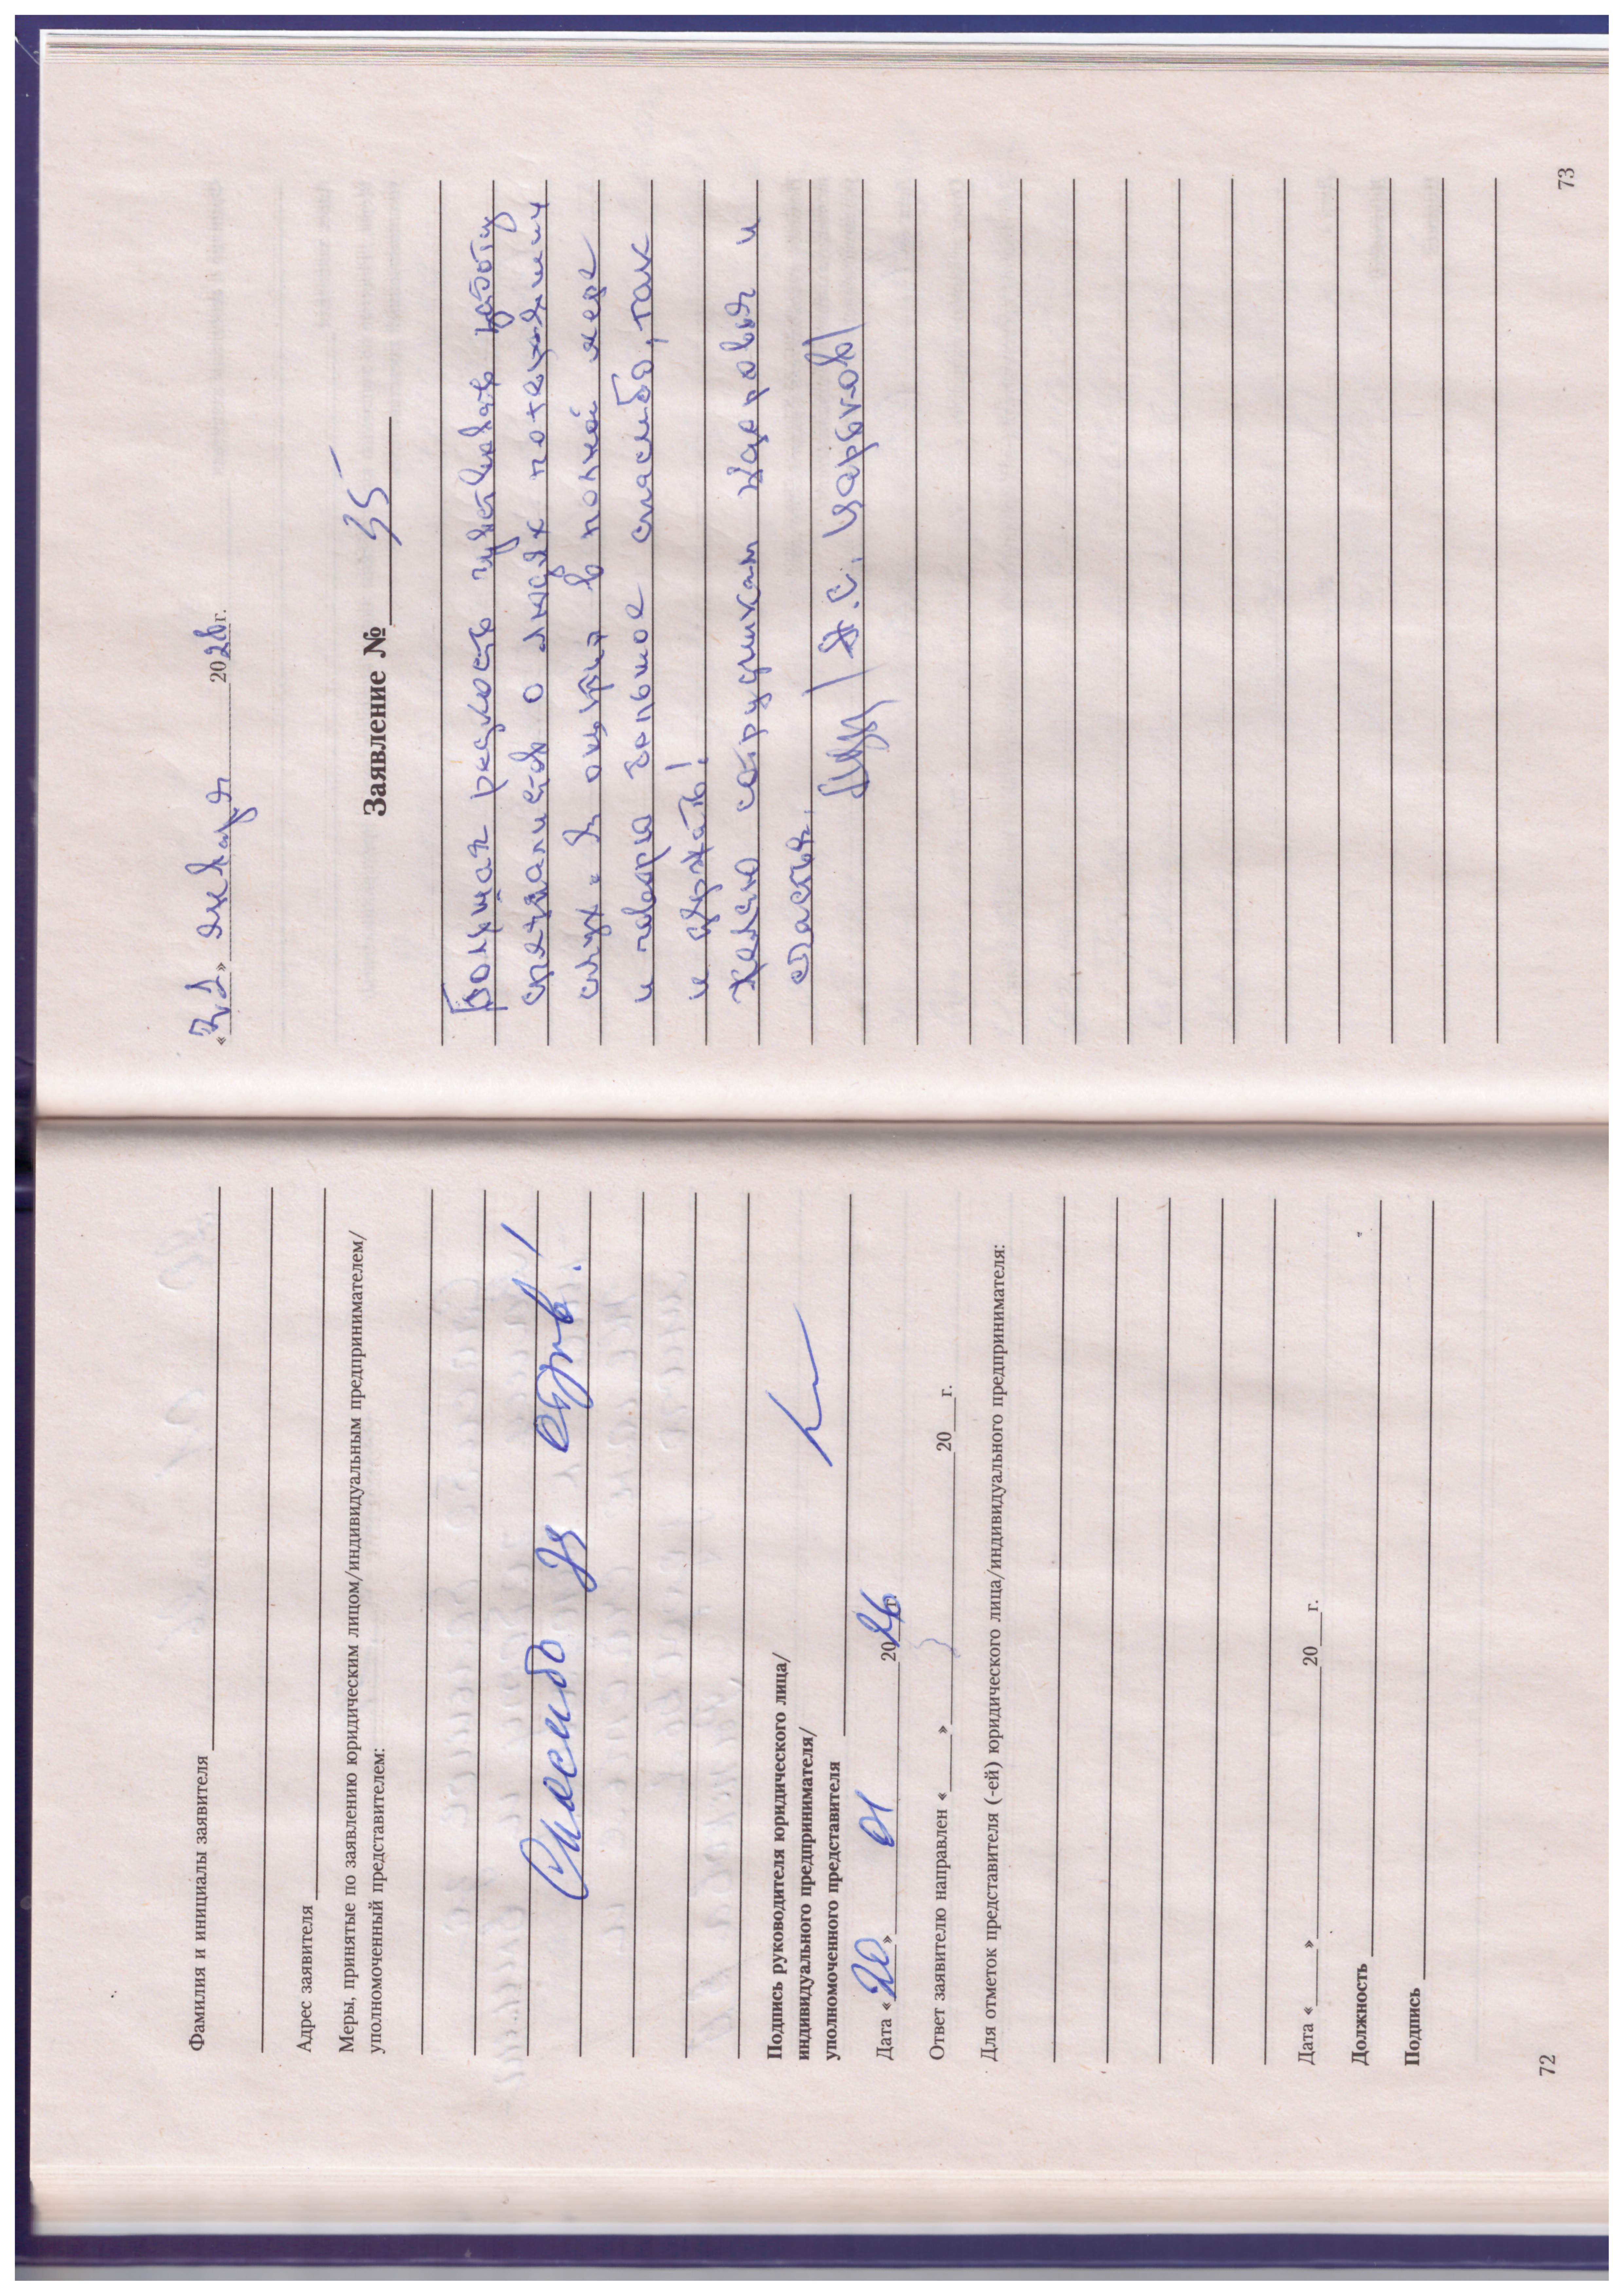 Фамилия и инициалы заявителя
Адрес заявителя
Меры, принятые по заявлению юридическим лицом/индивидуальным предпринимателем/
уполномоченный представителем:
Спасибо за отзыв!
Подпись руководителя юридического лица/
индивидуального предпринимателя/
уполномоченного представителя
Дата «20» 01 2026
Ответ заявителю направлен «___» ___ 20___г.
Для отметок представителя (-ей) юридического лица/индивидуального предпринимателя:
Дата «___» ___ 20___г.
Должность
Подпись
72
«21» января 2026 г.
Заявление № 35
Большая радость чувствовать заботу
специалистов о людях потерявших
слух. Я ощутил в полной мере
и говорю большое спасибо, так
и держать!
Желаю сотрудникам здоровья и
счастья.
73